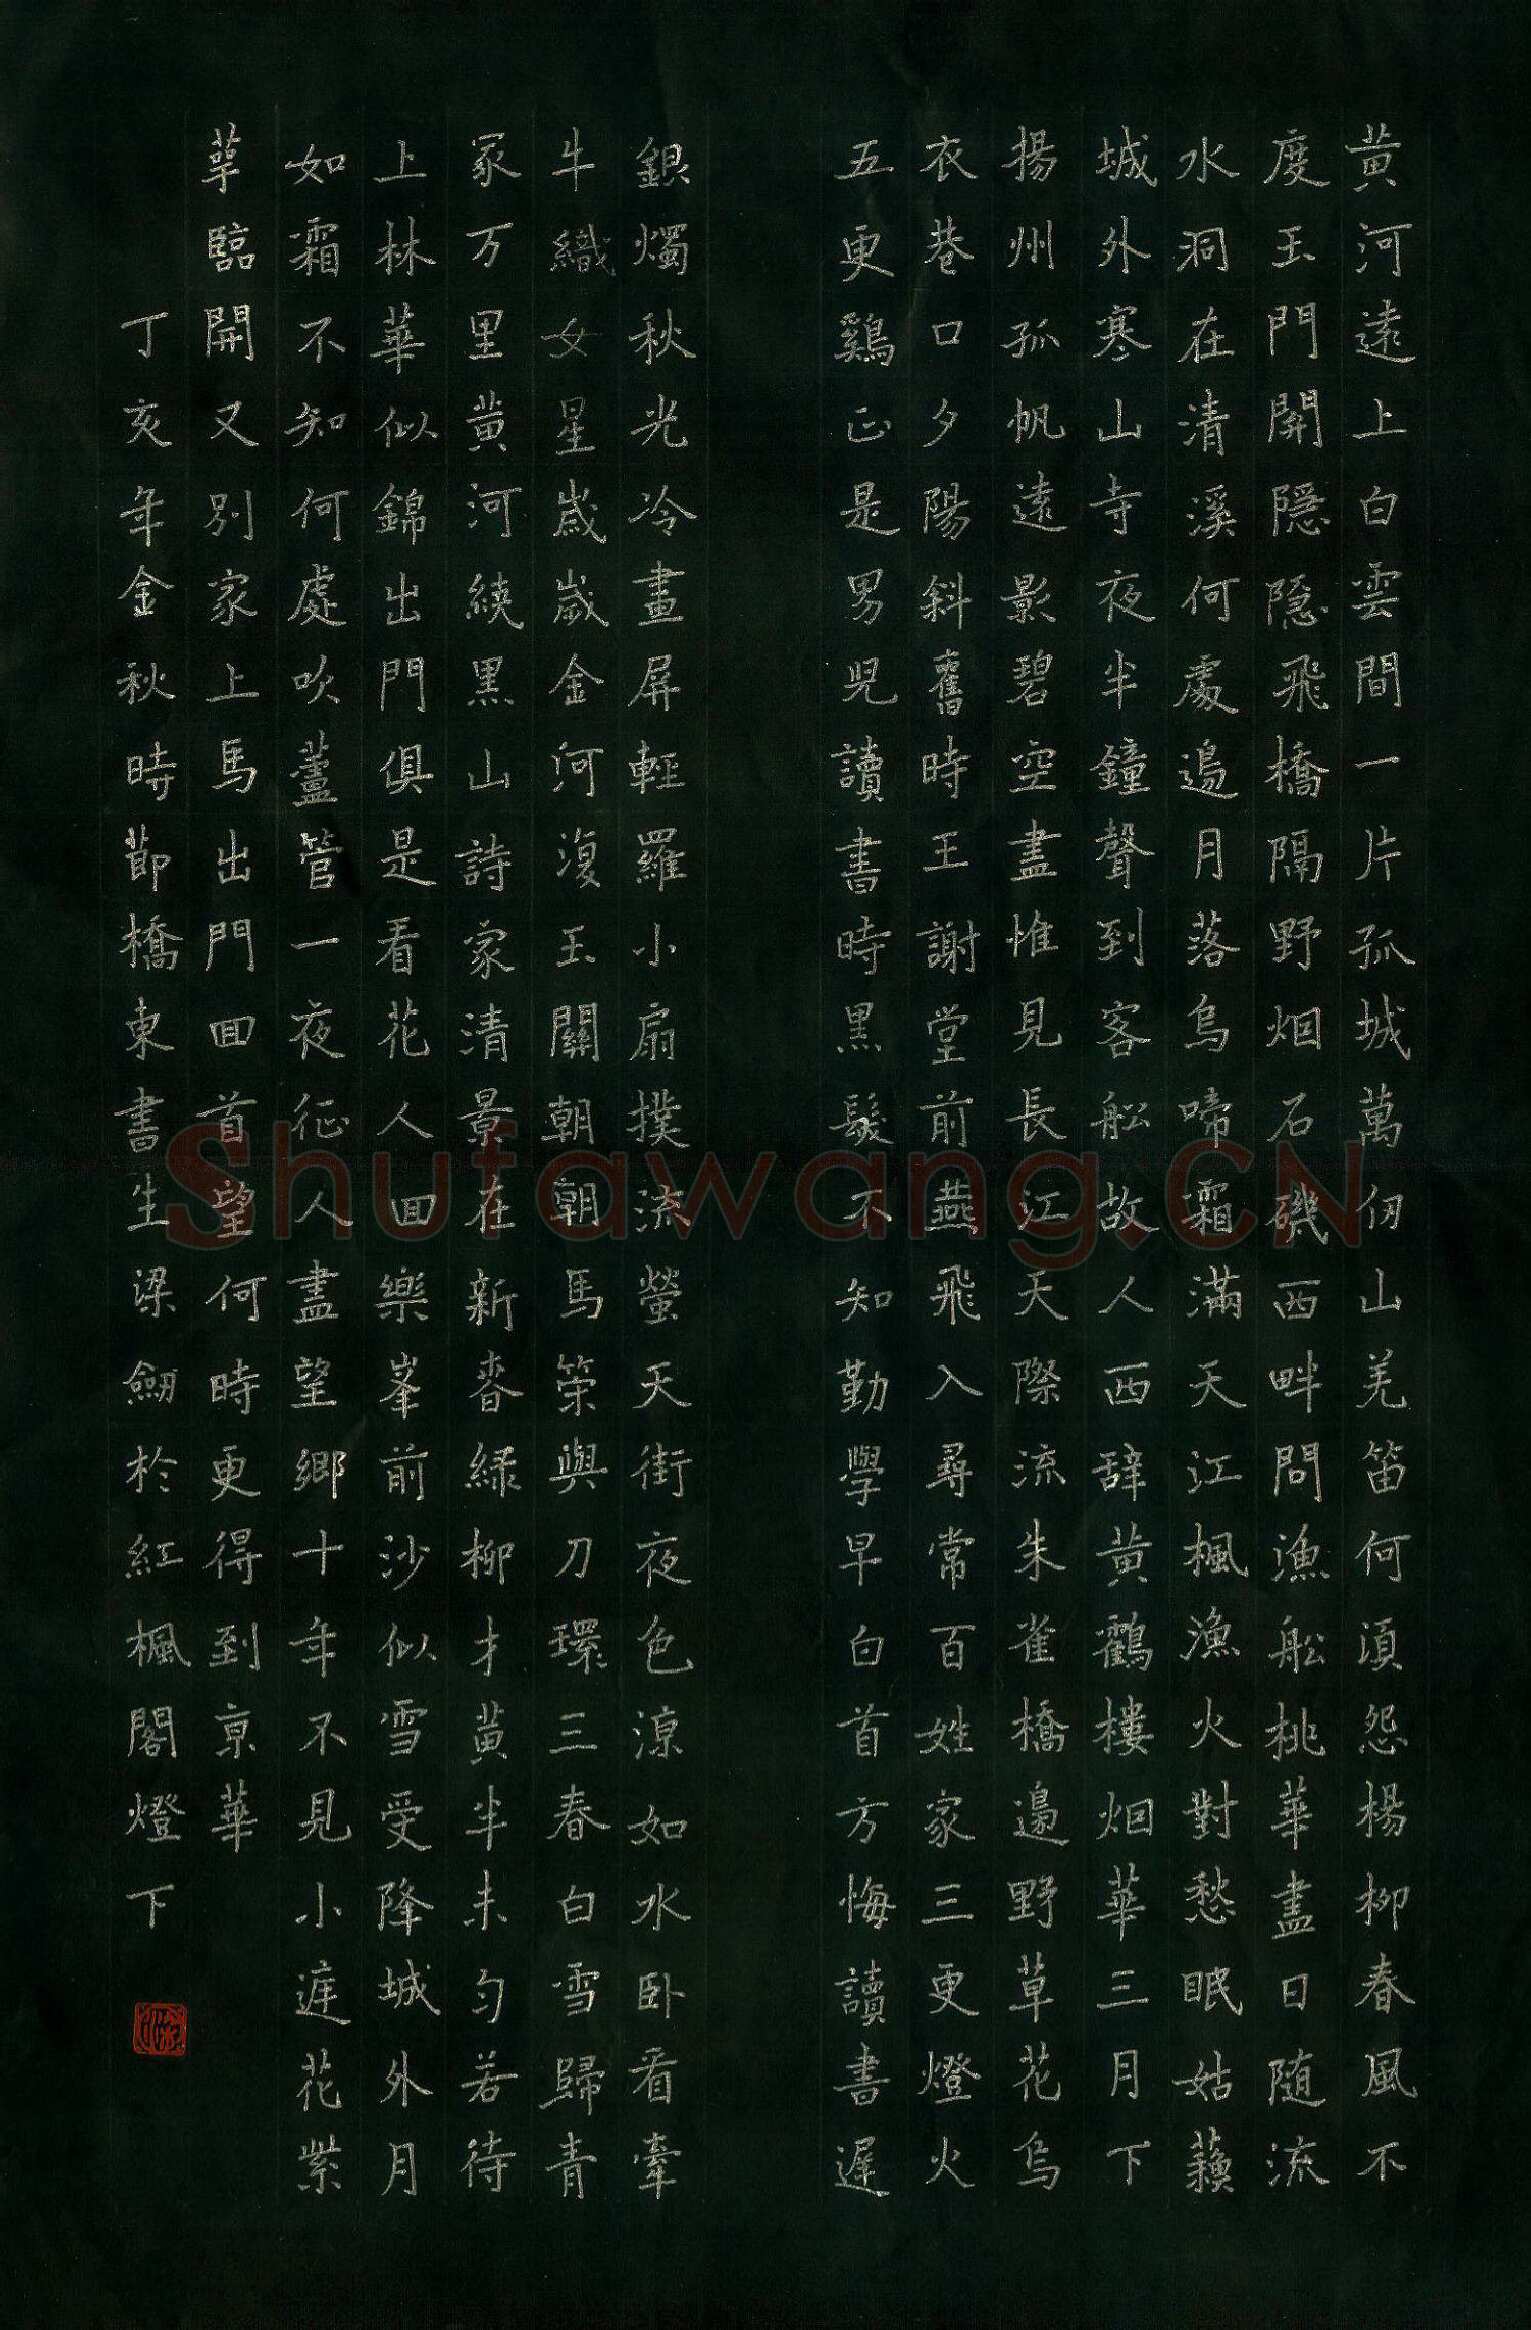 黃河遠上白雲間一片孤城萬仞山羌笛何湏怨楊柳春風不
度玉門關隱隱飛橋隔野烟石磯西畔問漁舩桃華盡日随流
水洞在清溪何處邉月落烏啼霜滿天江楓漁火對愁眠姑蘓
城外寒山寺夜半鐘聲到客舩故人西辞黃鶴樓烟華三月下
揚州孤帆遠影碧空盡惟見長江天際流朱雀橋邉野草花烏
衣巷口夕陽斜舊時王謝堂前燕飛入尋常百姓家三更燈火
五更鷄正是男児讀書時黑髮不知勤學早白首方悔讀書遲
銀燭秋光冷畫屏輕羅小扇撲流螢天街夜色涼如水卧看牽
牛織女星歲歲金河復玉關朝朝馬策與刀環三春白雪歸青
冢万里黃河繞黑山詩家清景在新春綠柳才黃半未勻若待
上林華似錦出門俱是看花人回樂峯前沙似雪受降城外月
如霜不知何處吹蘆管一夜征人盡望鄉十年不見小庭花紫
萼臨開又別家上馬出門回首望何時更得到京華
丁亥年金秋時節橋東書生梁劒於紅楓閣燈下
Shufawang.CN